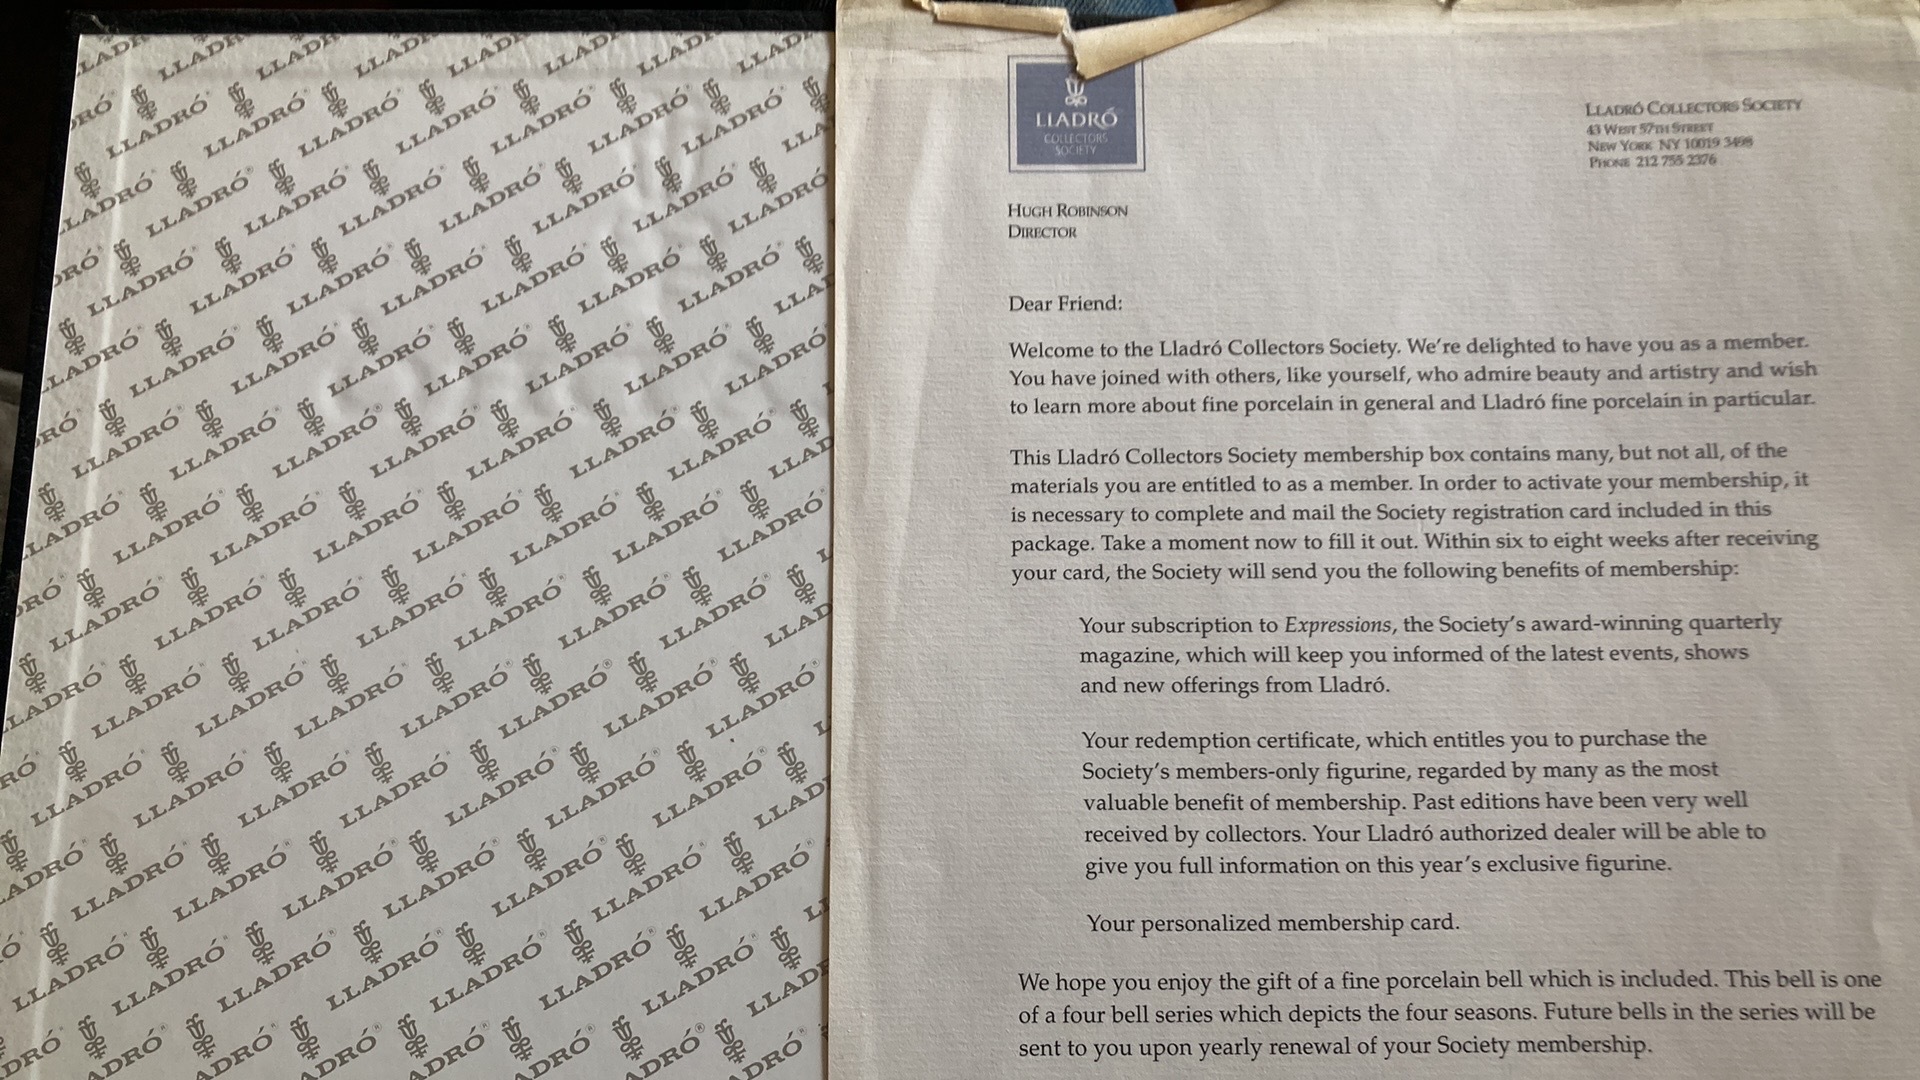 LLADRÓ
LLADRÓ
COLLECTORS
SOCIETY
LLADRÓ COLLECTORS SOCIETY
43 WEST 57TH STREET
NEW YORK NY 10019 3498
PHONE 212 755 2376
HUGH ROBINSON
DIRECTOR
Dear Friend:
Welcome to the Lladró Collectors Society. We're delighted to have you as a member.
You have joined with others, like yourself, who admire beauty and artistry and wish
to learn more about fine porcelain in general and Lladró fine porcelain in particular.
This Lladró Collectors Society membership box contains many, but not all, of the
materials you are entitled to as a member. In order to activate your membership, it
is necessary to complete and mail the Society registration card included in this
package. Take a moment now to fill it out. Within six to eight weeks after receiving
your card, the Society will send you the following benefits of membership:
Your subscription to Expressions, the Society's award-winning quarterly
magazine, which will keep you informed of the latest events, shows
and new offerings from Lladró.
Your redemption certificate, which entitles you to purchase the
Society's members-only figurine, regarded by many as the most
valuable benefit of membership. Past editions have been very well
received by collectors. Your Lladró authorized dealer will be able to
give you full information on this year's exclusive figurine.
Your personalized membership card.
We hope you enjoy the gift of a fine porcelain bell which is included. This bell is one
of a four bell series which depicts the four seasons. Future bells in the series will be
sent to you upon yearly renewal of your Society membership.